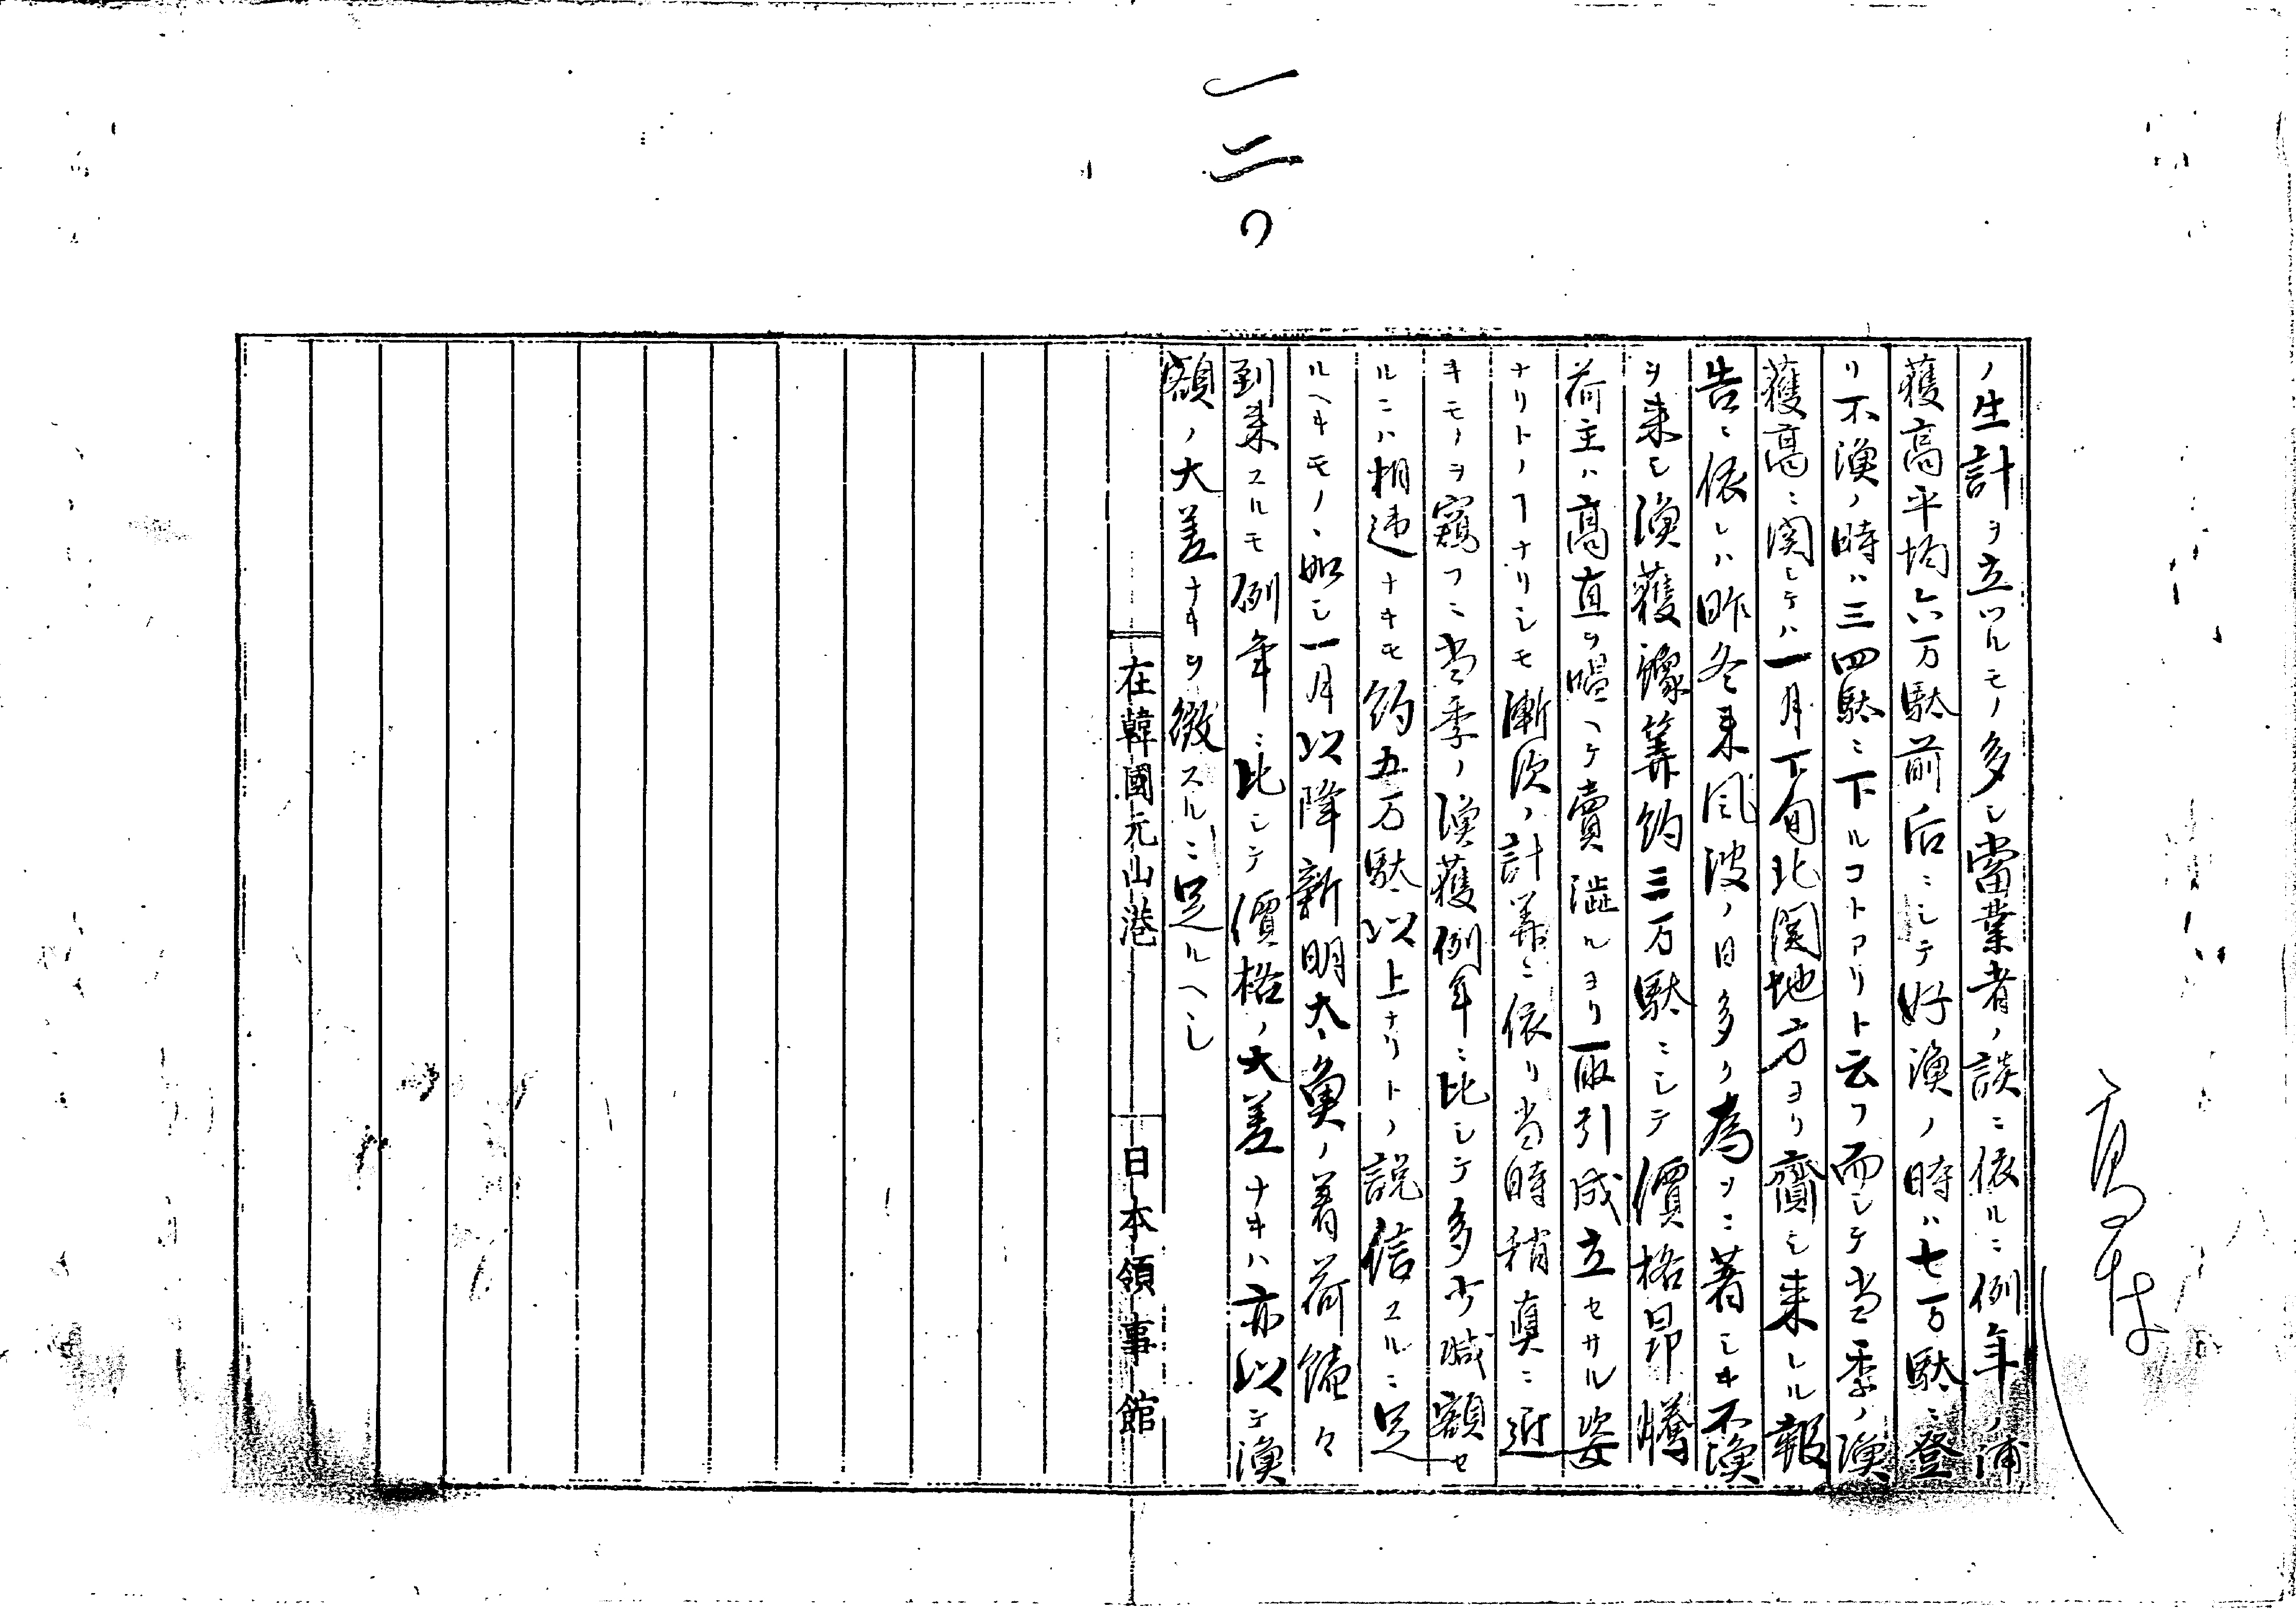 一二〇
ノ生計ヲ立ツルモノ多シ當業者ノ談ニ依ルニ例年ノ浦
獲高平均六万駄前后ニシテ好漁ノ時ハ七万駄ニ登
リ不漁ノ時ハ三四駄ニ下ルコトアリト云フ而シテ当季ノ漁
獲高ニ関シテハ一月下旬北関地方ヨリ齎シ来レル報
告ニ依レハ昨冬来風波ノ日多ク為メニ著シキ不漁
ヲ来シ漁獲豫算約三万駄ニシテ價格昂騰
荷主ハ高直ヲ唱ヘテ賣澁ルヨリ取引成立セサル姿
ナリトノヿナリシモ漸次ノ計算ニ依リ当時稍真ニ近
キモノヲ窺フニ当季ノ漁獲例年ニ比シテ多少減額セ
ルニハ相違ナキモ約五万駄以上ナリトノ説信スルニ足
ルヘキモノヽ如シ一月以降新明太魚ノ着荷續々
到来スルモ例年ニ比シテ價格ノ大差ナキハ亦以テ漁
額ノ大差ナキヲ徴スルニ足ルヘシ
在韓國元山港 日本領事館